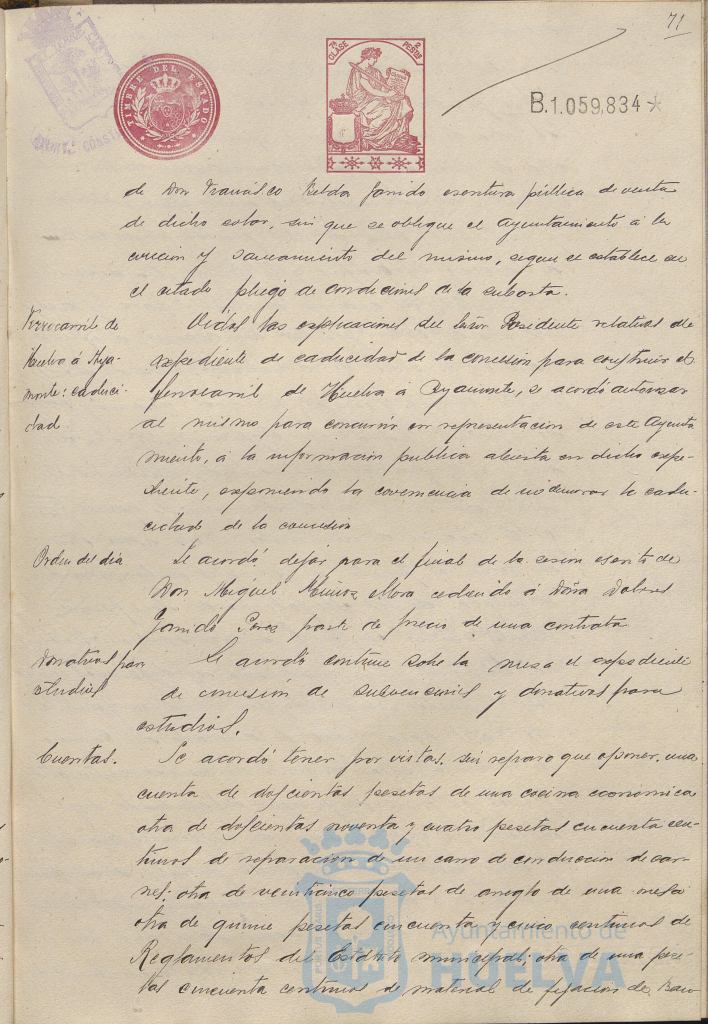 71
TIMBRE DEL ESTADO
7ª CLASE 2 PESETAS
B.1.059,834
de Don Francisco Belda Garrido escritura pública de venta
de dicho solar, sin que se obligue el Ayuntamiento á la
evicción y saneamiento del mismo, segun se establece en
el citado pliego de condiciones de la subasta.
Ferrocarril de
Huelva á Aya-
monte: caduci-
dad
Oidas las explicaciones del Señor Presidente relativas al
expediente de caducidad de la concesión para construir el
ferrocarril de Huelva á Ayamonte, se acordó autorizar
al mismo para concurrir en representación de este Ayunta
miento, á la información pública abierta en dicho expe-
diente, exponiendo la conveniencia de no demorar la cadu-
cidad de la concesión
Orden del dia
Se acordó dejar para el final de la sesion escrito de
Don Miguel Muñoz Mora cediendo á Doña Dolores
Garrido Perez parte de precio de una contrata
Donativos para
estudios
Se acordó continue sobre la mesa el expediente
de concesión de subvenciones y donativos para
estudios.
Cuentas.
Se acordó tener por vistas, sin reparo que oponer, una
cuenta de doscientas pesetas de una cocina económica
otra de doscientas noventa y cuatro pesetas cincuenta cen-
timos de reparacion de un carro de conducción de car-
nes; otra de veinticinco pesetas de arreglo de una mesa
otra de quince pesetas cincuenta y cinco centimos de
Reglamentos del Estatuto municipal; otra de una pese-
tas cincuenta centimos de material de fijacion de Ban
Ayuntamiento de
HUELVA